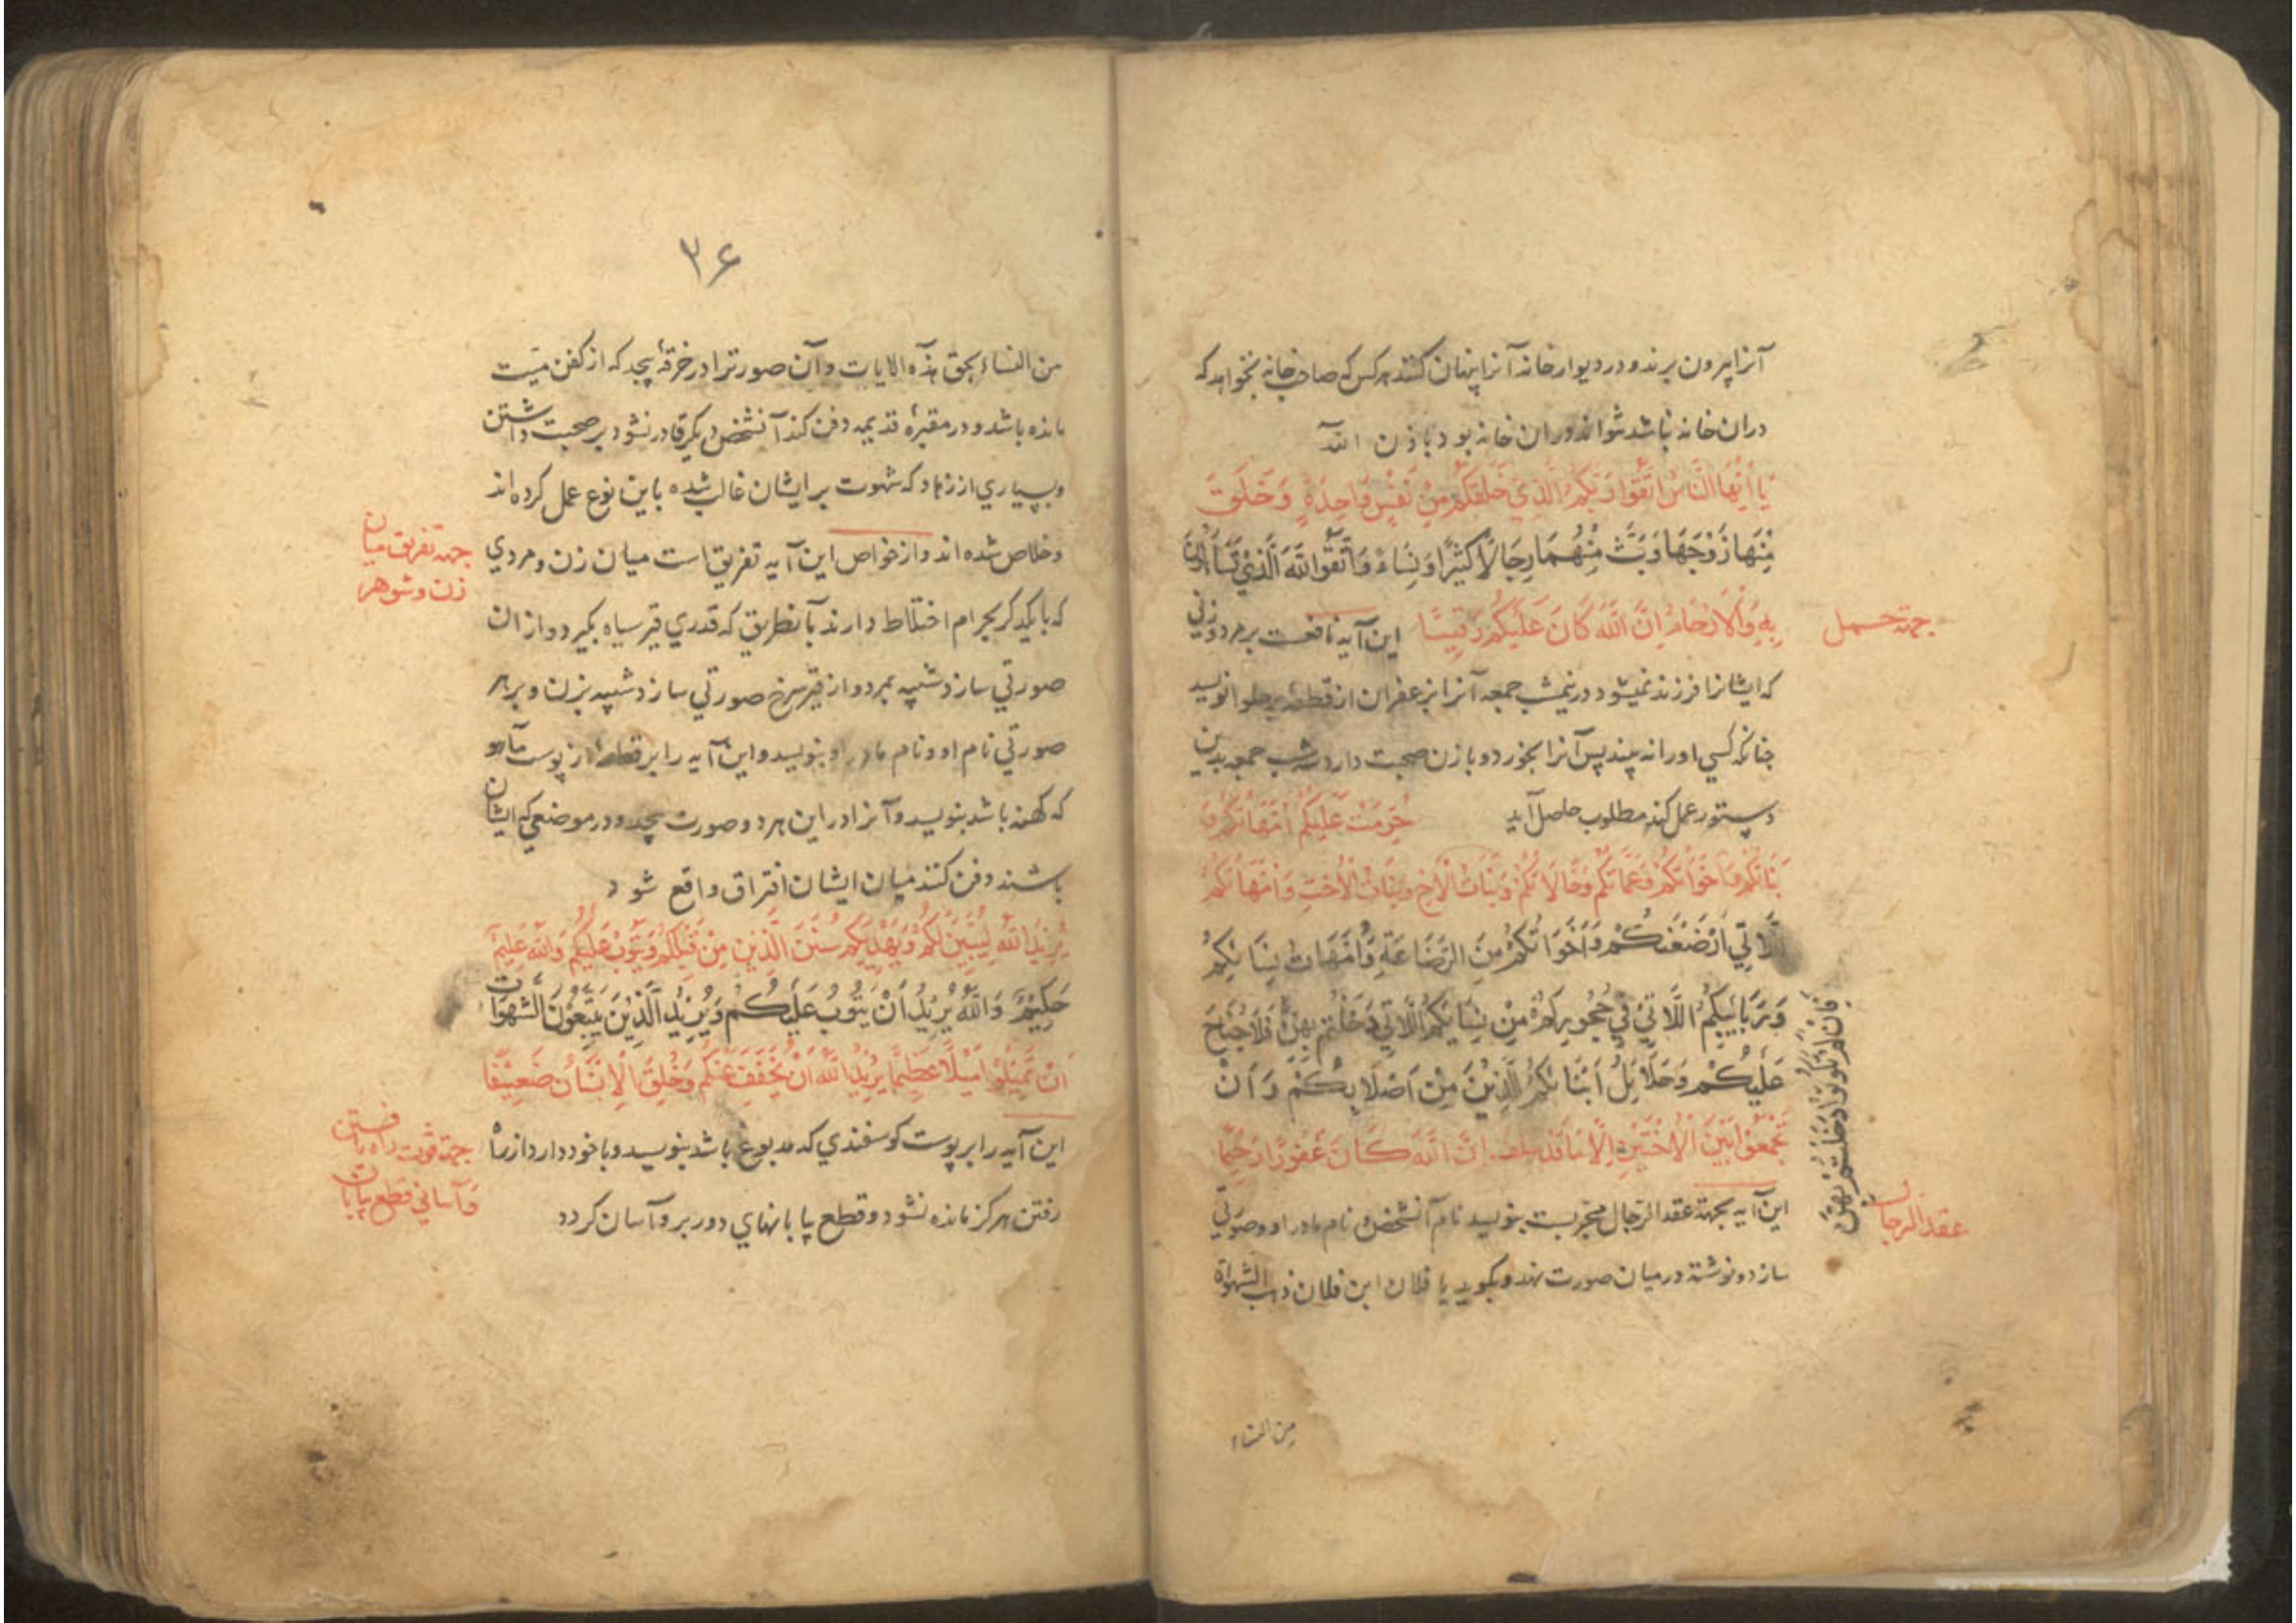 آنرا بیرون برند و در دیوار خانه آنرا پنهان کنند هر کس که صاحب خانه نخواهد که
دران خانه باشد نتواند دران خانه بود باذن الله
يَا أَيُّهَا النَّاسُ اتَّقُوا رَبَّكُمُ الَّذِي خَلَقَكُمْ مِنْ نَفْسٍ وَاحِدَةٍ وَخَلَقَ
مِنْهَا زَوْجَهَا وَبَثَّ مِنْهُمَا رِجَالًا كَثِيرًا وَنِسَاءً وَاتَّقُوا اللَّهَ الَّذِي تَسَاءَلُونَ
بِهِ وَالْأَرْحَامَ إِنَّ اللَّهَ كَانَ عَلَيْكُمْ رَقِيبًا این آیه نافعست بر مرد و زنی
جهة حمل
که ایشانرا فرزند نمیشود در نیمشب جمعه آنرا بزعفران از قطعه بر حلوا نویسد
چنانکه کسی اورا نه بیند پس آنرا بخورد و با زن صحبت دارد شب جمعه بدین
دستور عمل کند مطلوب حاصل آید حُرِّمَتْ عَلَيْكُمْ أُمَّهَاتُكُمْ وَ
بَنَاتُكُمْ وَأَخَوَاتُكُمْ وَعَمَّاتُكُمْ وَخَالَاتُكُمْ وَبَنَاتُ الْأَخِ وَبَنَاتُ الْأُخْتِ وَأُمَّهَاتُكُمُ
اللَّاتِي أَرْضَعْنَكُمْ وَأَخَوَاتُكُمْ مِنَ الرَّضَاعَةِ وَأُمَّهَاتُ نِسَائِكُمْ
وَرَبَائِبُكُمُ اللَّاتِي فِي حُجُورِكُمْ مِنْ نِسَائِكُمُ اللَّاتِي دَخَلْتُمْ بِهِنَّ فَلَا جُنَاحَ
فَإِنْ لَمْ تَكُونُوا دَخَلْتُمْ بِهِنَّ
عَلَيْكُمْ وَحَلَائِلُ أَبْنَائِكُمُ الَّذِينَ مِنْ أَصْلَابِكُمْ وَأَنْ
تَجْمَعُوا بَيْنَ الْأُخْتَيْنِ إِلَّا مَا قَدْ سلف إِنَّ اللَّهَ كَانَ غَفُورًا رَحِيمًا
این آیه بجهة عقد الرجال مجربست بنویسد نام آنشخص و نام مادر او و صورتی
عقد الرجال
سازد و نوشته در میان صورت نهد و بگوید یا فلان ابن فلان ذهب الشهوة
من النساء
۳۶
من النساء بحق هذه الایات و آن صورترا در خرقهٔ پیچد که از کفن میت
مانده باشد و در مقبرهٔ قدیمه دفن کند آنشخص دیگر قادر نشود بر صحبت داشتن
و بسیاری از زهاد که شهوت بر ایشان غالب شده باین نوع عمل کرده اند
و خلاص شده اند و از خواص این آیه تفریق است میان زن و مردی
جهة تفریق میان
زن و شوهر
که با یکدیگر بحرام اختلاط دارند بآنطریق که قدری قیر سیاه بگیرد و از ان
صورتی سازد شبیه بمرد و از قیر سرخ صورتی سازد شبیه بزن و بر هر
صورتی نام او و نام مادر او بنویسد و این آیه را بر قطعهٔ از پوست آهو
که کهنه باشد بنویسد و آنرا در این هر دو صورت پیچد و در موضعی که ایشان
باشند دفن کنند میان ایشان افتراق واقع شود
يُرِيدُ اللَّهُ لِيُبَيِّنَ لَكُمْ وَيَهْدِيَكُمْ سُنَنَ الَّذِينَ مِنْ قَبْلِكُمْ وَيَتُوبَ عَلَيْكُمْ وَاللَّهُ عَلِيمٌ
حَكِيمٌ وَاللَّهُ يُرِيدُ أَنْ يَتُوبَ عَلَيْكُمْ وَيُرِيدُ الَّذِينَ يَتَّبِعُونَ الشَّهَوَاتِ
أَنْ تَمِيلُوا مَيْلًا عَظِيمًا يُرِيدُ اللَّهُ أَنْ يُخَفِّفَ عَنْكُمْ وَخُلِقَ الْإِنْسَانُ ضَعِيفًا
این آیه را بر پوست کوسفندی که مدبوغ باشد بنویسد و با خود دارد از راه
جهة قوت راه رفتن
و آسانی قطع بیابان
رفتن هرگز مانده نشود و قطع بیابانهای دور بر و آسان کردد